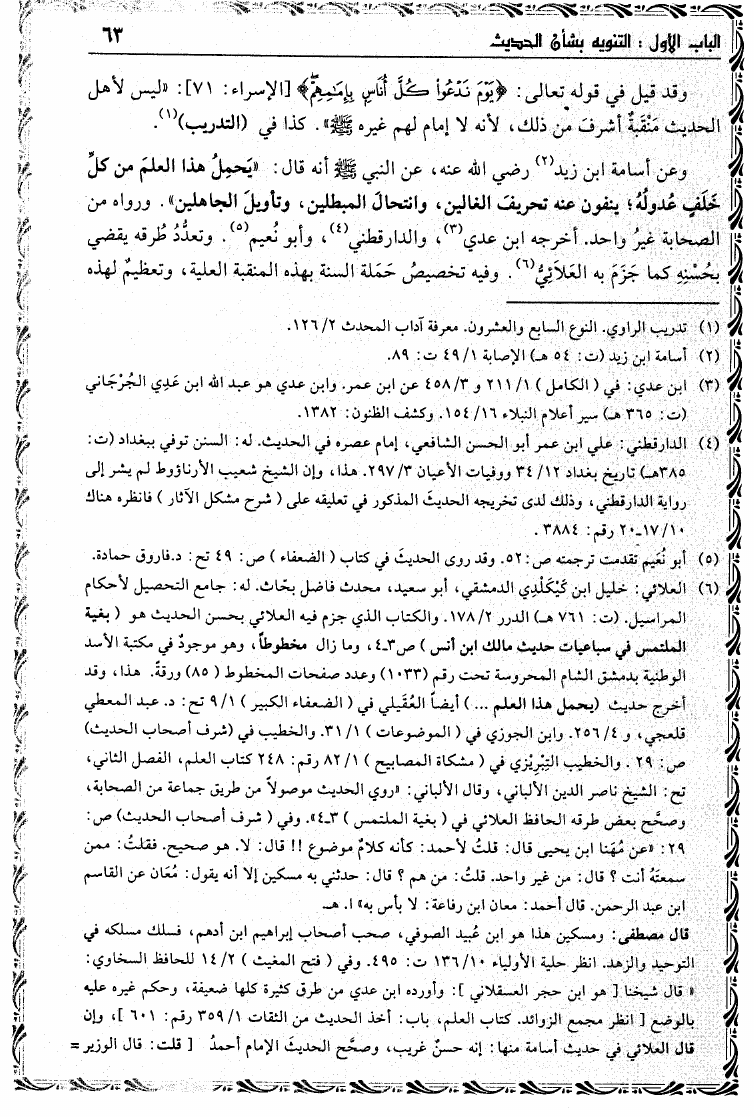 الباب الأول : التنويه بشأن الحديث ٦٣
وقد قيل في قوله تعالى: ﴿يَوْمَ نَدْعُواْ كُلَّ أُنَاسٍ بِإِمَامِهِمْ﴾ [الإسراء: ٧١]: «ليس لأهل
الحديث مَنْقَبةٌ أشرفَ من ذلك، لأنه لا إمام لهم غيره ﷺ». كذا في (التدريب)(١).
وعن أسامة ابن زيد(٢) رضي الله عنه، عن النبي ﷺ أنه قال: «يَحمِلُ هذا العلمَ من كلِّ
خَلَفٍ عُدولُهُ؛ ينفون عنه تحريفَ الغالين، وانتحالَ المبطلين، وتأويلَ الجاهلين». ورواه من
الصحابة غيرُ واحد. أخرجه ابن عدي(٣)، والدارقطني(٤)، وأبو نعيم(٥). وتعدُّدُ طُرقه يقضي
بحُسْنِهِ كما جَزَمَ به العَلاَئِيُّ(٦). وفيه تخصيصُ حَمَلة السنة بهذه المنقبة العلية، وتعظيمٌ لهذه
(١) تدريب الراوي. النوع السابع والعشرون. معرفة آداب المحدث ١٢٦/٢.
(٢) أسامة ابن زيد (ت: ٥٤ هـ) الإصابة ٤٩/١ ت: ٨٩.
(٣) ابن عدي: في ( الكامل ) ٢١١/١ و ٤٥٨/٣ عن ابن عمر. وابن عدي هو عبد الله ابن عَدِي الجُرْجَاني
(ت: ٣٦٥ هـ) سير أعلام النبلاء ١٥٤/١٦. وكشف الظنون: ١٣٨٢.
(٤) الدارقطني: علي ابن عمر أبو الحسن الشافعي، إمام عصره في الحديث. له: السنن توفي ببغداد (ت:
٣٨٥هـ) تاريخ بغداد ٣٤/١٢ ووفيات الأعيان ٢٩٧/٣. هذا، وإن الشيخ شعيب الأرناؤوط لم يشر إلى
رواية الدارقطني، وذلك لدى تخريجه الحديثَ المذكور في تعليقه على ( شرح مشكل الآثار ) فانظره هناك
١٧/١٠-٢٠ رقم: ٣٨٨٤.
(٥) أبو نُعَيم تقدمت ترجمته ص: ٥٢. وقد روى الحديثَ في كتاب ( الضعفاء ) ص: ٤٩ تح: د.فاروق حمادة.
(٦) العلائي: خليل ابن كَيْكَلْدي الدمشقي، أبو سعيد، محدث فاضل بحّاث. له: جامع التحصيل لأحكام
المراسيل. (ت: ٧٦١ هـ) الدرر ١٧٨/٢. والكتاب الذي جزم فيه العلائي بحسن الحديث هو ( بغية
الملتمس في سباعيات حديث مالك ابن أنس ) ص٣-٤، وما زال مخطوطاً، وهو موجودٌ في مكتبة الأسد
الوطنية بدمشق الشام المحروسة تحت رقم (١٠٣٣) وعدد صفحات المخطوط ( ٨٥) ورقةً. هذا، وقد
أخرج حديث (يحمل هذا العلم ... ) أيضاً العُقَيلي في ( الضعفاء الكبير ) ٩/١ تح: د. عبد المعطي
قلعجي، و ٢٥٦/٤. وابن الجوزي في ( الموضوعات ) ٣١/١. والخطيب في (شرف أصحاب الحديث)
ص: ٢٩ . والخطيب التِبْرِيْزي في ( مشكاة المصابيح ) ٨٢/١ رقم: ٢٤٨ كتاب العلم، الفصل الثاني،
تح: الشيخ ناصر الدين الألباني، وقال الألباني: «روي الحديث موصولاً من طريق جماعة من الصحابة،
وصحَّح بعض طرقه الحافظ العلائي في ( بغية الملتمس ) ٣-٤». وفي ( شرف أصحاب الحديث) ص:
٢٩: «عن مُهَنا ابن يحيى قال: قلتُ لأحمد: كأنه كلامٌ موضوع !! قال: لا. هو صحيح. فقلتُ: ممن
سمعتَهُ أنت ؟ قال: من غير واحد. قلتُ: من هم ؟ قال: حدثني به مسكين إلا أنه يقول: مُعَان عن القاسم
ابن عبد الرحمن. قال أحمد: معان ابن رفاعة: لا بأس به» ا. هـ.
قال مصطفى: ومسكين هذا هو ابن عُبيد الصوفي، صحب أصحاب إبراهيم ابن أدهم، فسلك مسلكه في
التوحيد والزهد. انظر حلية الأولياء ١٣٦/١٠ ت: ٤٩٥. وفي ( فتح المغيث ) ١٤/٢ للحافظ السخاوي:
« قال شيخنا [ هو ابن حجر العسقلاني ]: وأورده ابن عدي من طرق كثيرة كلها ضعيفة، وحكم غيره عليه
بالوضع [ انظر مجمع الزوائد. كتاب العلم، باب: أخذ الحديث من الثقات ٣٥٩/١ رقم: ٦٠١ ]، وإن
قال العلائي في حديث أسامة منها: إنه حسنٌ غريب، وصحَّح الحديثَ الإمام أحمدُ [ قلت: قال الوزير =